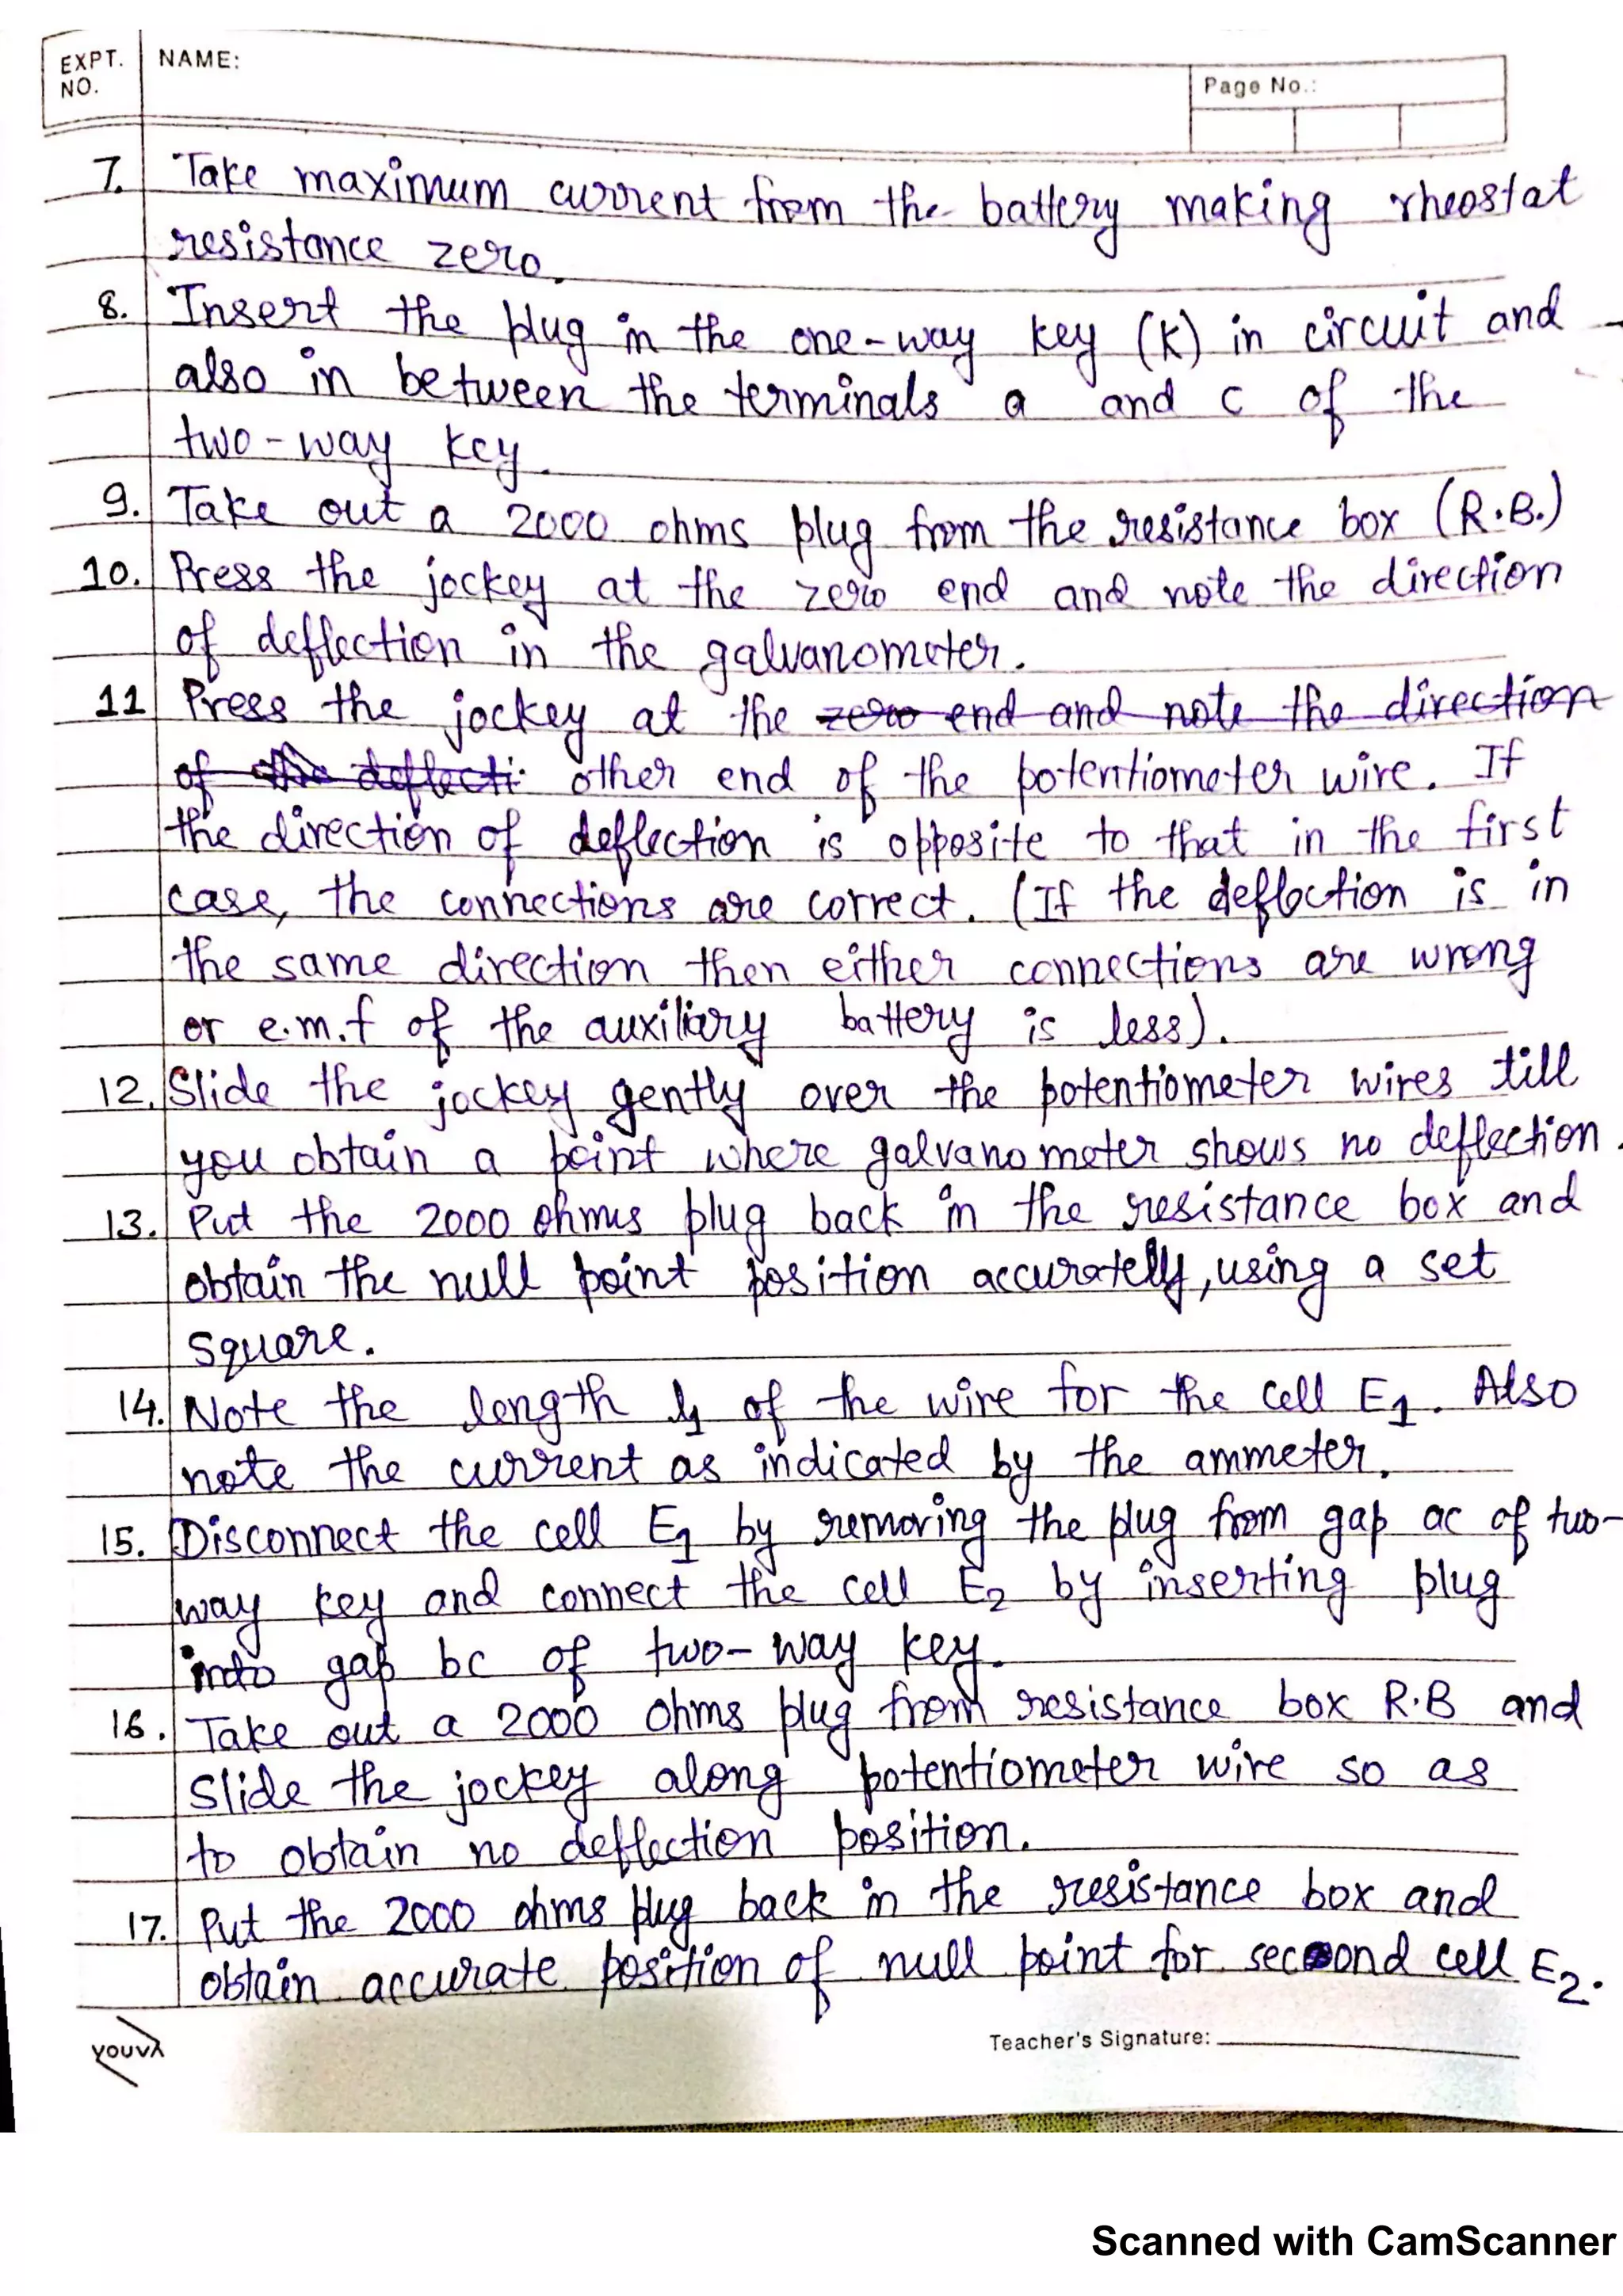 EXPT. NO.
NAME:
Page No.:
7. Take maximum current from the battery making rheostat
resistance zero.
8. Insert the plug in the one-way key (K) in circuit and
also in between the terminals a and c of the
two-way key.
9. Take out a 2000 ohms plug from the resistance box (R.B.)
10. Press the jockey at the zero end and note the direction
of deflection in the galvanometer.
11 Press the jockey at the zero end and note the direction
of the deflecti. other end of the potentiometer wire. If
the direction of deflection is opposite to that in the first
case, the connections are correct. (If the deflection is in
the same direction then either connections are wrong
or e.m.f of the auxiliary battery is less).
12. Slide the jockey gently over the potentiometer wires till
you obtain a point where galvanometer shows no deflection.
13. Put the 2000 ohms plug back in the resistance box and
obtain the null point position accurately, using a set
square.
14. Note the length l1 of the wire for the cell E1. Also
note the current as indicated by the ammeter.
15. Disconnect the cell E1 by removing the plug from gap ac of two-
way key and connect the cell E2 by inserting plug
into gap bc of two-way key.
16. Take out a 2000 ohms plug from resistance box R.B and
slide the jockey along potentiometer wire so as
to obtain no deflection position.
17. Put the 2000 ohms plug back in the resistance box and
obtain accurate position of null point for second cell E2.
youva
Teacher's Signature:
Scanned with CamScanner